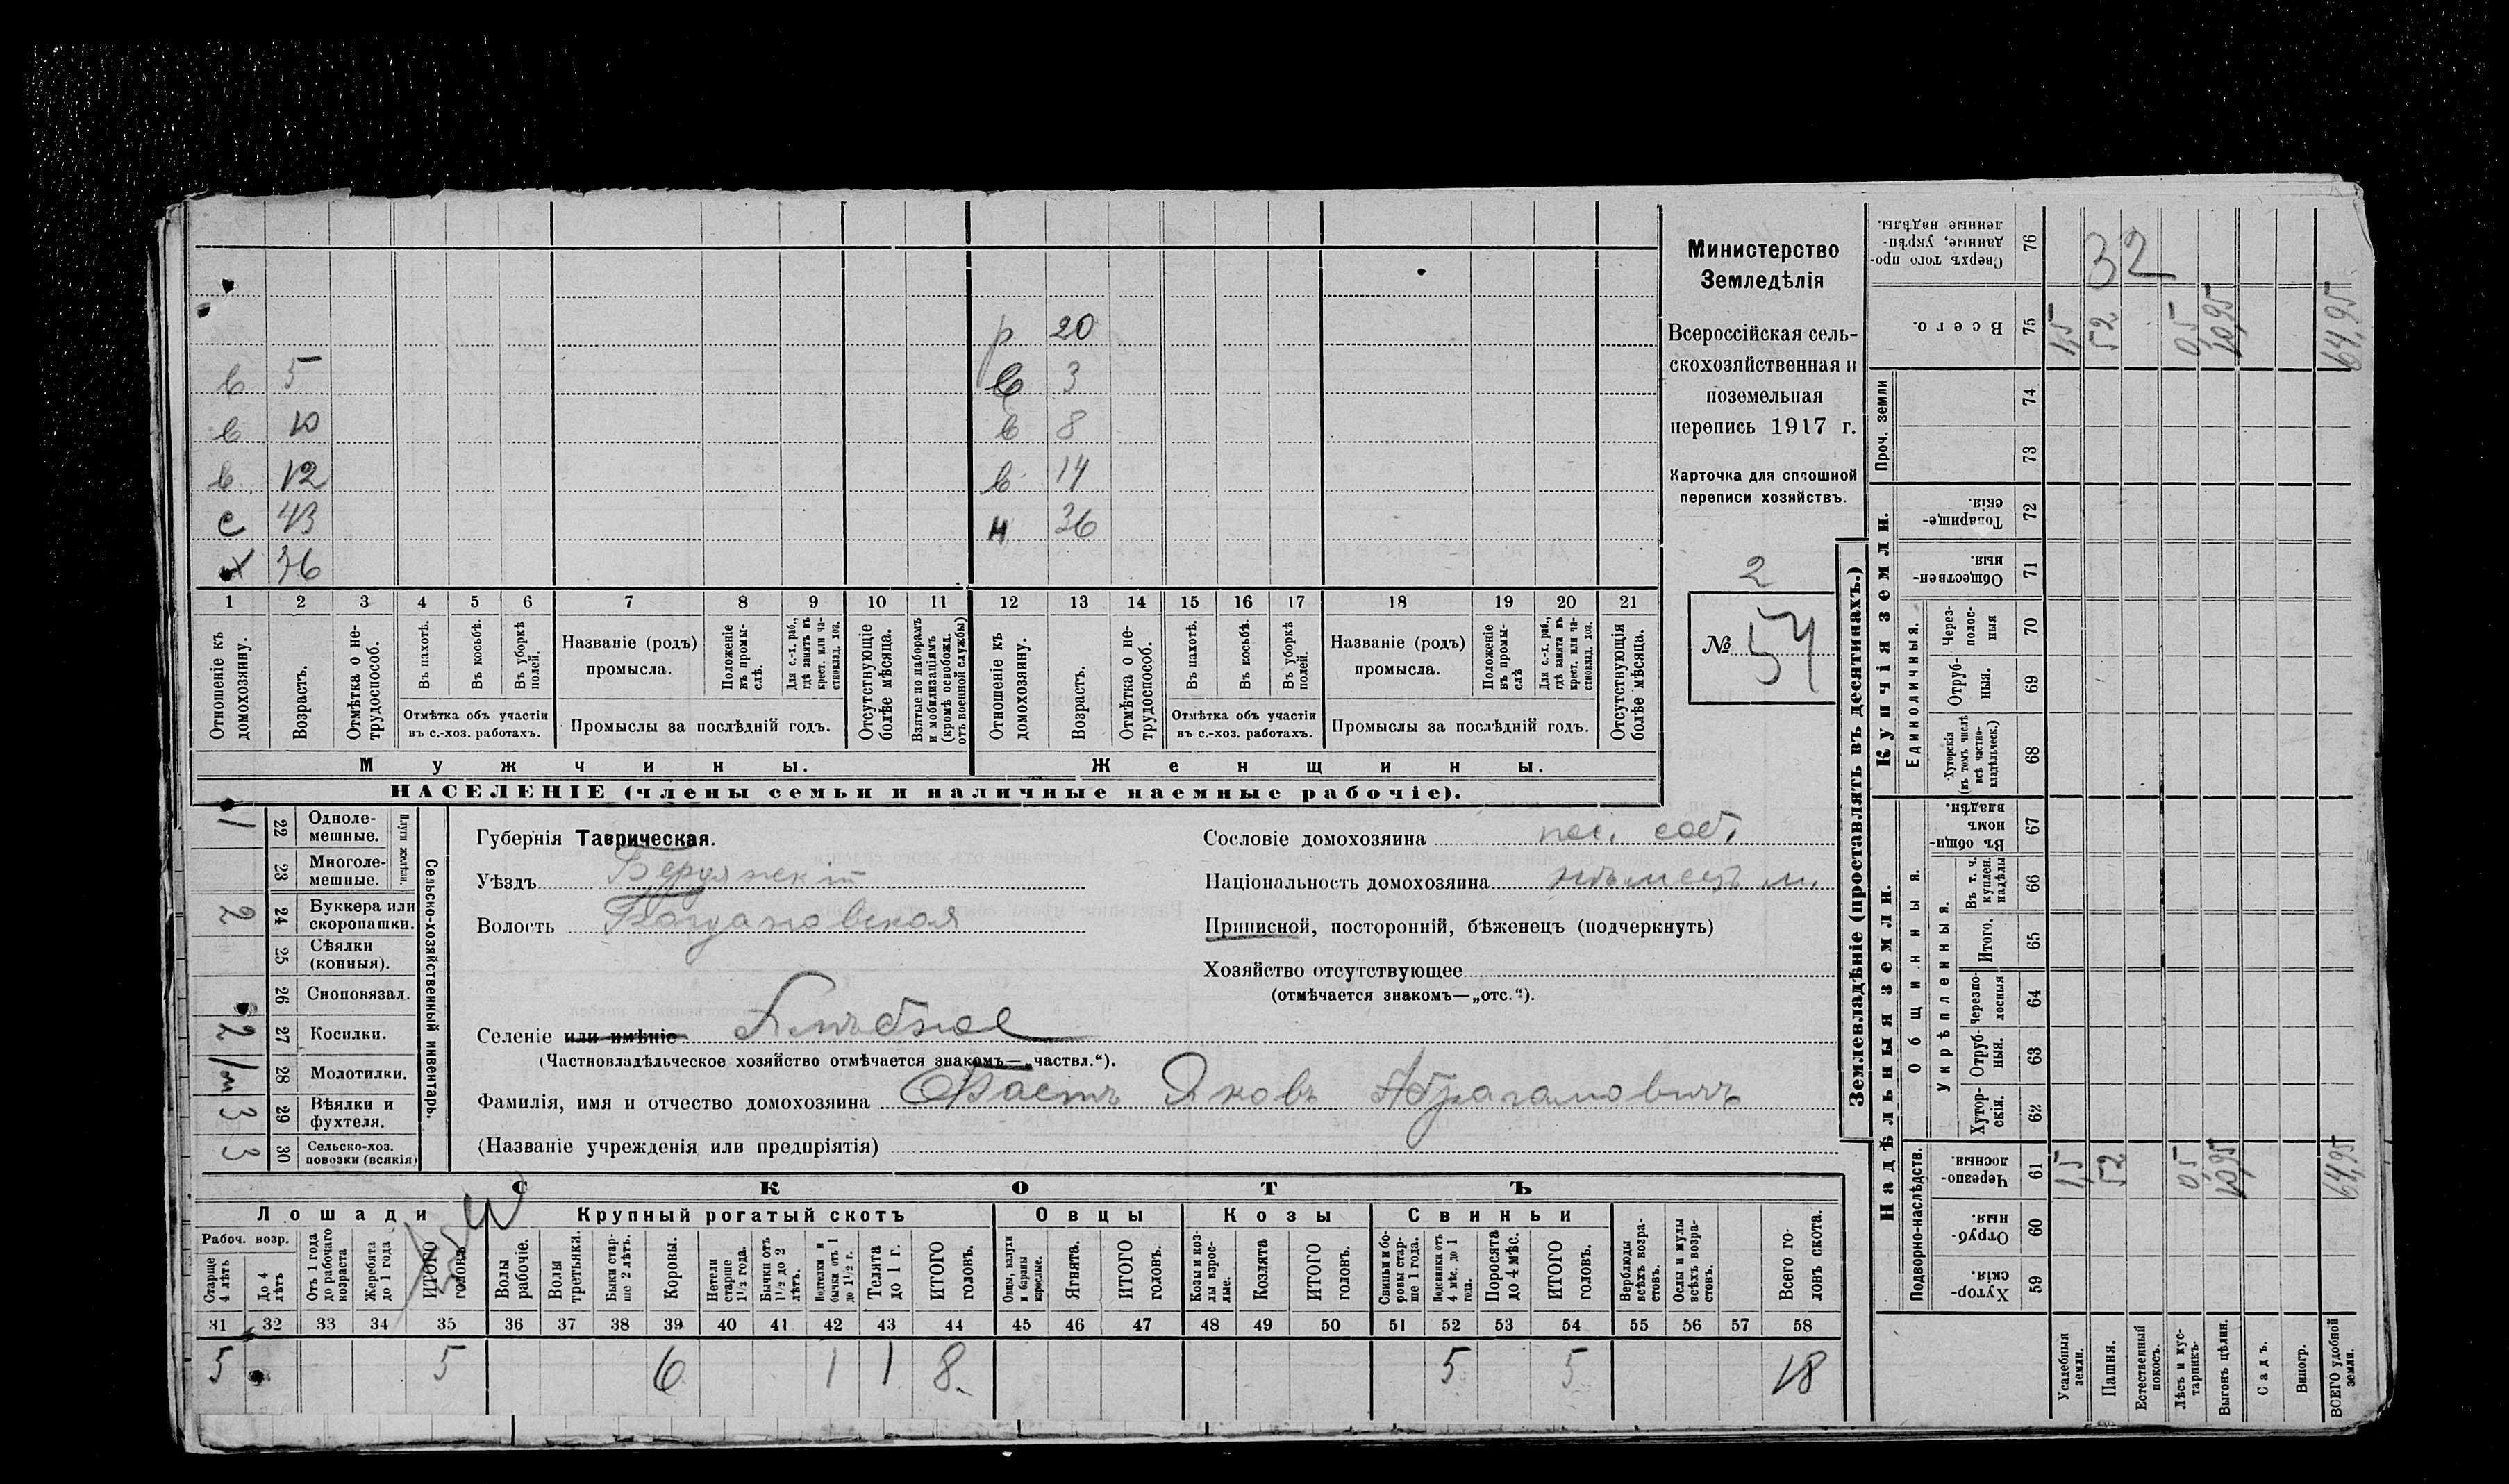 Министерство
Земледѣлія
Всероссійская сель-
скохозяйственная и
поземельная
перепись 1917 г.
Карточка для сплошной
переписи хозяйствъ.
2
№ 54
р 20
в 5 в 3
в 10 в 8
в 12 в 14
с 43 н 36
х 36
1 2 3 4 5 6 7 8 9 10 11 12 13 14 15 16 17 18 19 20 21
Отношеніе къ домохозяину.
Возрастъ.
Отмѣтка о не-трудоспособ.
Въ пахотѣ.
Въ косьбѣ.
Въ уборкѣ полей.
Отмѣтка объ участіи въ с.-хоз. работахъ.
Названіе (родъ) промысла.
Положеніе въ промы-слѣ.
Для с.-х. раб., гдѣ занятъ въ крест. или ча-стновлад. хоз.
Промыслы за послѣдній годъ.
Отсутствующіе болѣе мѣсяца.
Взятые по наборамъ и мобилизаціямъ (кромѣ освобожд. отъ военной службы)
Отношеніе къ домохозяину.
Возрастъ.
Отмѣтка о не-трудоспособ.
Въ пахотѣ.
Въ косьбѣ.
Въ уборкѣ полей.
Отмѣтка объ участіи въ с.-хоз. работахъ.
Названіе (родъ) промысла.
Положеніе въ промы-слѣ
Для с.-х. раб., гдѣ занята въ крест. или ча-стновлад. хоз.
Промыслы за послѣдній годъ.
Отсутствующія болѣе мѣсяца.
Мужчины. Женщины.
НАСЕЛЕНІЕ (члены семьи и наличные наемные рабочіе).
Сельско-хозяйственный инвентарь.
Плуги желѣзн.
1 22 Однолемешные.
23 Многолемешные.
2 24 Буккера или скоропашки.
25 Сѣялки (конныя).
26 Сноповязал.
2 27 Косилки.
28 Молотилки.
3 29 Вѣялки и фухтеля.
3 30 Сельско-хоз. повозки (всякія)
Губернія Таврическая.
Уѣздъ Бердянскій
Волость Богдановская
Селеніе или имѣніе
(Частновладѣльческое хозяйство отмѣчается знакомъ—„частвл.“).
Фамилія, имя и отчество домохозяина Фастъ Яковъ Абрагамовичъ
(Названіе учрежденія или предпріятія)
Сословіе домохозяина пос. соб.
Національность домохозяина нѣмецъ м.
Приписной, посторонній, бѣженецъ (подчеркнуть)
Хозяйство отсутствующее
(отмѣчается знакомъ—„отс.“).
СКОТЪ
Лошади Крупный рогатый скотъ Овцы Козы Свиньи
Рабоч. возр.
Старше 4 лѣтъ
До 4 лѣтъ
Отъ 1 года до рабочаго возраста
Жеребята до 1 года
ИТОГО головъ.
Волы рабочіе.
Волы третьяки.
Быки стар-ше 2 лѣтъ.
Коровы.
Нетели старше 1½ года.
Бычки отъ 1½ до 2 лѣтъ.
Подтелки и бычки отъ 1 до 1½ г.
Телята до 1 г.
ИТОГО головъ.
Овцы, валухи и бараны взрослые.
Ягнята.
ИТОГО головъ.
Козы и коз-лы взрос-лые.
Козлята
ИТОГО головъ.
Свиньи и бо-ровы стар-ше 1 года.
Подсвинки отъ 4 мѣс. до 1 года.
Поросята до 4 мѣс.
ИТОГО головъ.
Верблюды всѣхъ возра-стовъ.
Ослы и мулы всѣхъ возра-стовъ.
Всего го-ловъ скота.
31 32 33 34 35 36 37 38 39 40 41 42 43 44 45 46 47 48 49 50 51 52 53 54 55 56 57 58
5 5 6 1 1 8 5 5 18
Землевладѣніе (проставлять въ десятинахъ.)
Надѣльныя земли. Купчія земли. Проч. земли
Подворно-наслѣдств.
Общинныя.
Укрѣпленныя.
Единоличныя.
Хутор-скія. 59
Отруб-ныя. 60
Черезпо-лосныя. 61
Хутор-скія. 62
Отруб-ныя. 63
Черезпо-лосныя 64
Итого. 65
Въ т. ч. куплен. надѣлы 66
Въ общи-номъ владѣн. 67
Хуторскія (въ томъ числѣ всѣ частно-владѣльческ.) 68
Отруб-ныя. 69
Через-полос-ныя 70
Обществен-ныя 71
Товарище-скія. 72
73
74
Всего. 75
Сверхъ того про-данные, укрѣп-ленные надѣлы. 76
32
Усадебныя земли. 1,5 1,5
Пашня. 52 52
Естественный покосъ.
Лѣсъ и кус-тарникъ. 0,5 0,5
Выгонъ цѣлин. 10,95 10,95
Садъ.
Виногр.
ВСЕГО удобной земли. 64,95 64,95